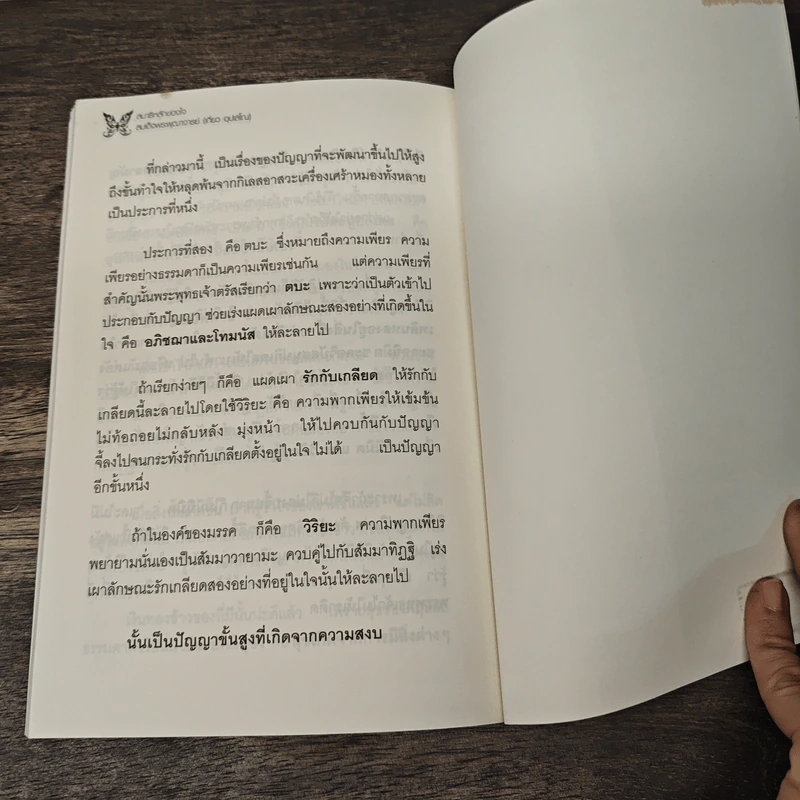 สมาธิหลักของใจ
สมเด็จพระพุฒาจารย์ (เกี่ยว อุปเสโณ)
ที่กล่าวมานี้ เป็นเรื่องของปัญญาที่จะพัฒนาขึ้นไปให้สูง
ถึงขั้นทำใจให้หลุดพ้นจากกิเลสอาสวะเครื่องเศร้าหมองทั้งหลาย
เป็นประการที่หนึ่ง
ประการที่สอง คือ ตบะ ซึ่งหมายถึงความเพียร ความ
เพียรอย่างธรรมดาก็เป็นความเพียรเช่นกัน แต่ความเพียรที่
สำคัญนั้นพระพุทธเจ้าตรัสเรียกว่า ตบะ เพราะว่าเป็นตัวเข้าไป
ประกอบกับปัญญา ช่วยเร่งแผดเผาลักษณะสองอย่างที่เกิดขึ้นใน
ใจ คือ อภิชฌาและโทมนัส ให้ละลายไป
ถ้าเรียกง่ายๆ ก็คือ แผดเผา รักกับเกลียด ให้รักกับ
เกลียดนี้ละลายไปโดยใช้วิริยะ คือ ความพากเพียรให้เข้มข้น
ไม่ท้อถอยไม่กลับหลัง มุ่งหน้า ให้ไปควบกันกับปัญญา
จี้ลงไปจนกระทั่งรักกับเกลียดตั้งอยู่ในใจ ไม่ได้ เป็นปัญญา
อีกขั้นหนึ่ง
ถ้าในองค์ของมรรค ก็คือ วิริยะ ความพากเพียร
พยายามนั่นเองเป็นสัมมาวายามะ ควบคู่ไปกับสัมมาทิฏฐิ เร่ง
เผาลักษณะรักเกลียดสองอย่างที่อยู่ในใจนั้นให้ละลายไป
นั้นเป็นปัญญาขั้นสูงที่เกิดจากความสงบ